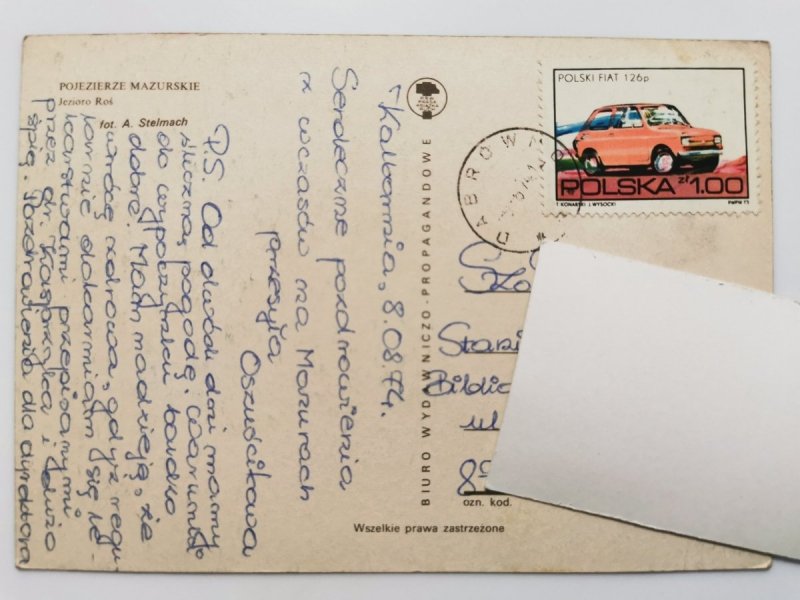 POJEZIERZE MAZURSKIE
Jezioro Roś
fot. A. Stelmach
Kalbornia, 8.08.74.
Serdeczne pozdrowienia
z wczasów na Mazurach
przesyła
PS. Od dwóch dni mamy
śliczną pogodę i warunki
do wypoczynku bardzo
dobre. Mam nadzieję, że
wrócę zdrowa, gdyż regu-
larnie dokarmiam się le-
karstwami przepisanymi
przez dr. Kasprzyka i dużo
śpię. Pozdrowienia dla dyrektora
BIURO WYDAWNICZO-PROPAGANDOWE
Wszelkie prawa zastrzeżone
POLSKI FIAT 126p
POLSKA zł 1.00
T KONARSKI J WYSOCKI
PWPW 73
DĄBRÓWN
ul
ozn. kod.